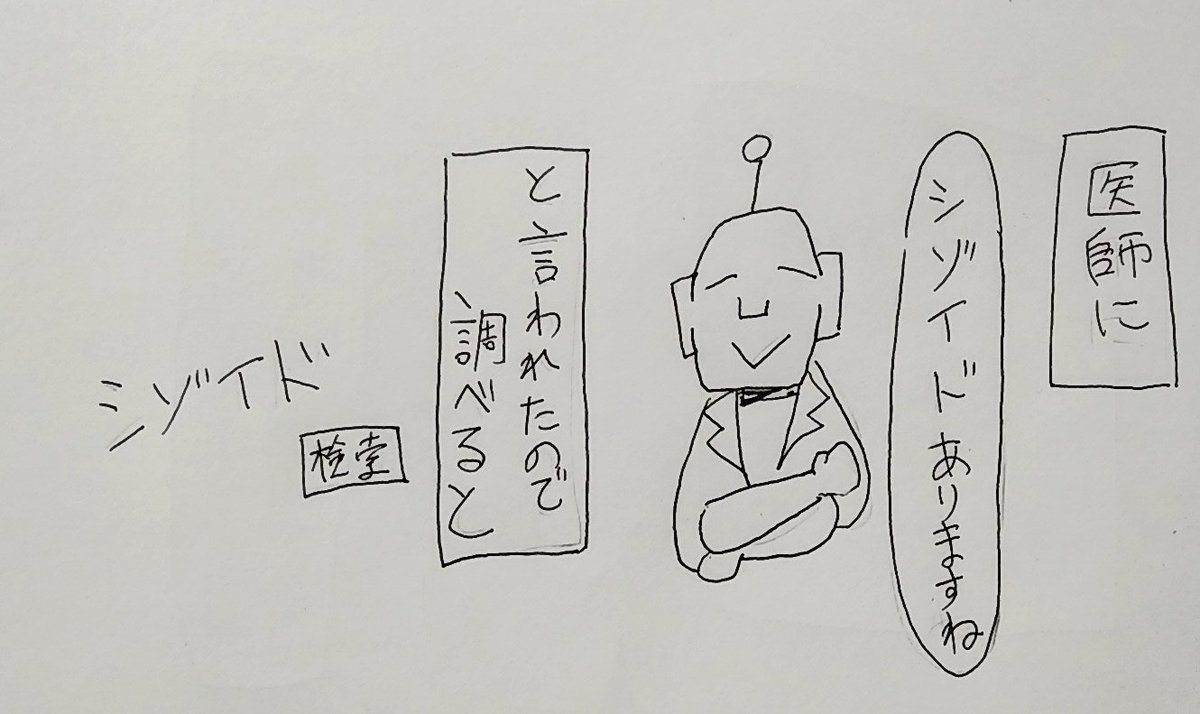 医師に
シゾイドありますね
と言われたので
調べると
シゾイド
検索